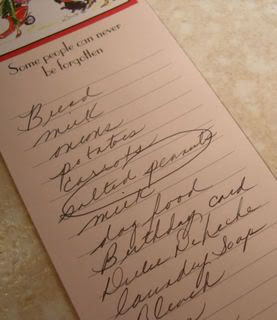 Some people can never
be forgotten
Bread
milk
onions
Potatoes
Carrots
Salted peanuts
milk
dog food
Birthday card
Dulce DeLeche
laundry soap
Bleach